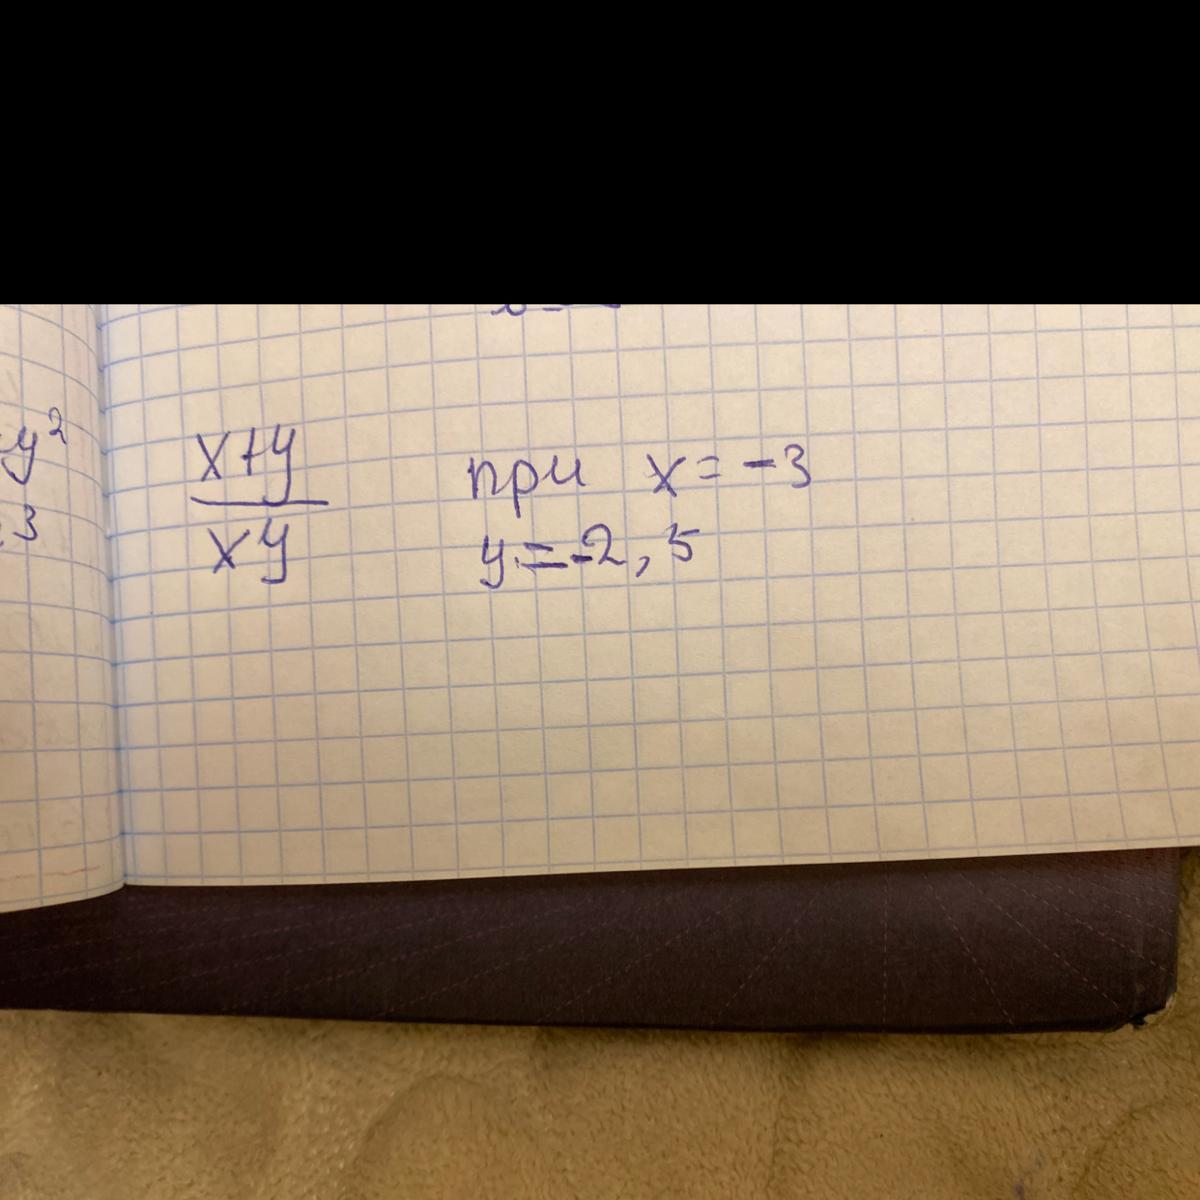 y²
3
x+y
xy
при x = -3
y = -2,5